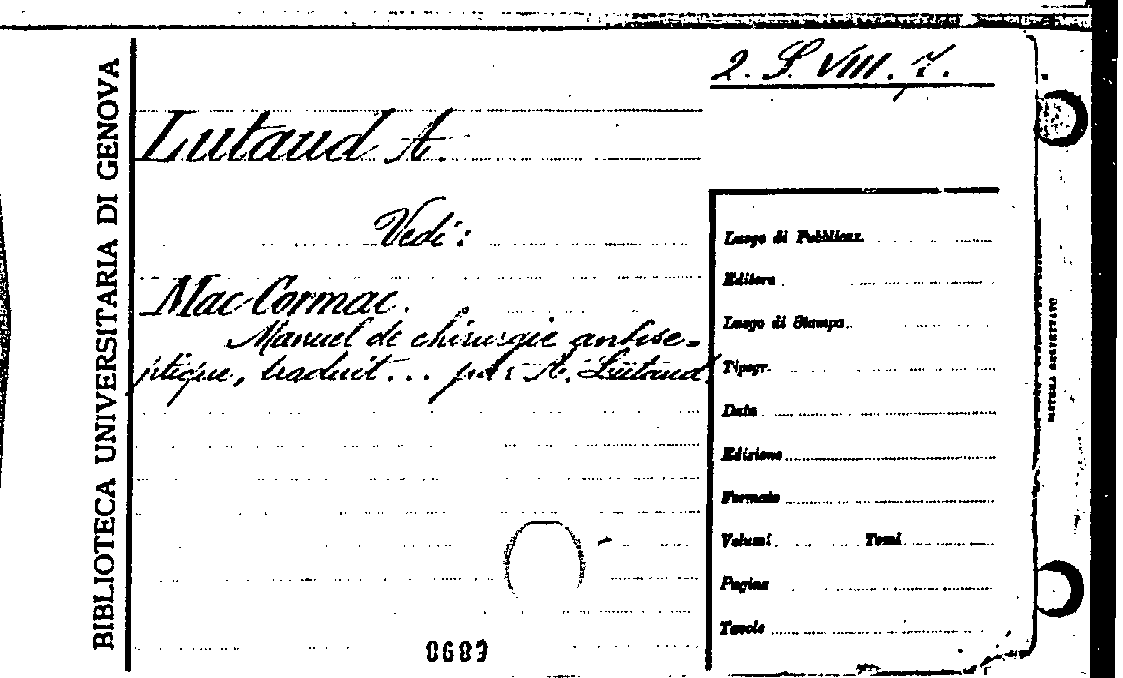 BIBLIOTECA UNIVERSITARIA DI GENOVA
2. S. VIII. 7.
Lutaud A.
Vedi:
Mac-Cormac.
Manuel de chirurgie antise-
ptique, traduit... par A. Lutaud.
Luogo di Pubblicaz.
Editore
Luogo di Stampa
Tipogr.
Data
Edizione
Formato
Volumi Tomi
Pagine
Tavole